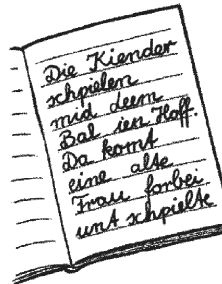 Die Kiender
schpielen
mid deem
Bal ien Hoff.
Da komt
eine alte
Frau forbei
unt schpielte